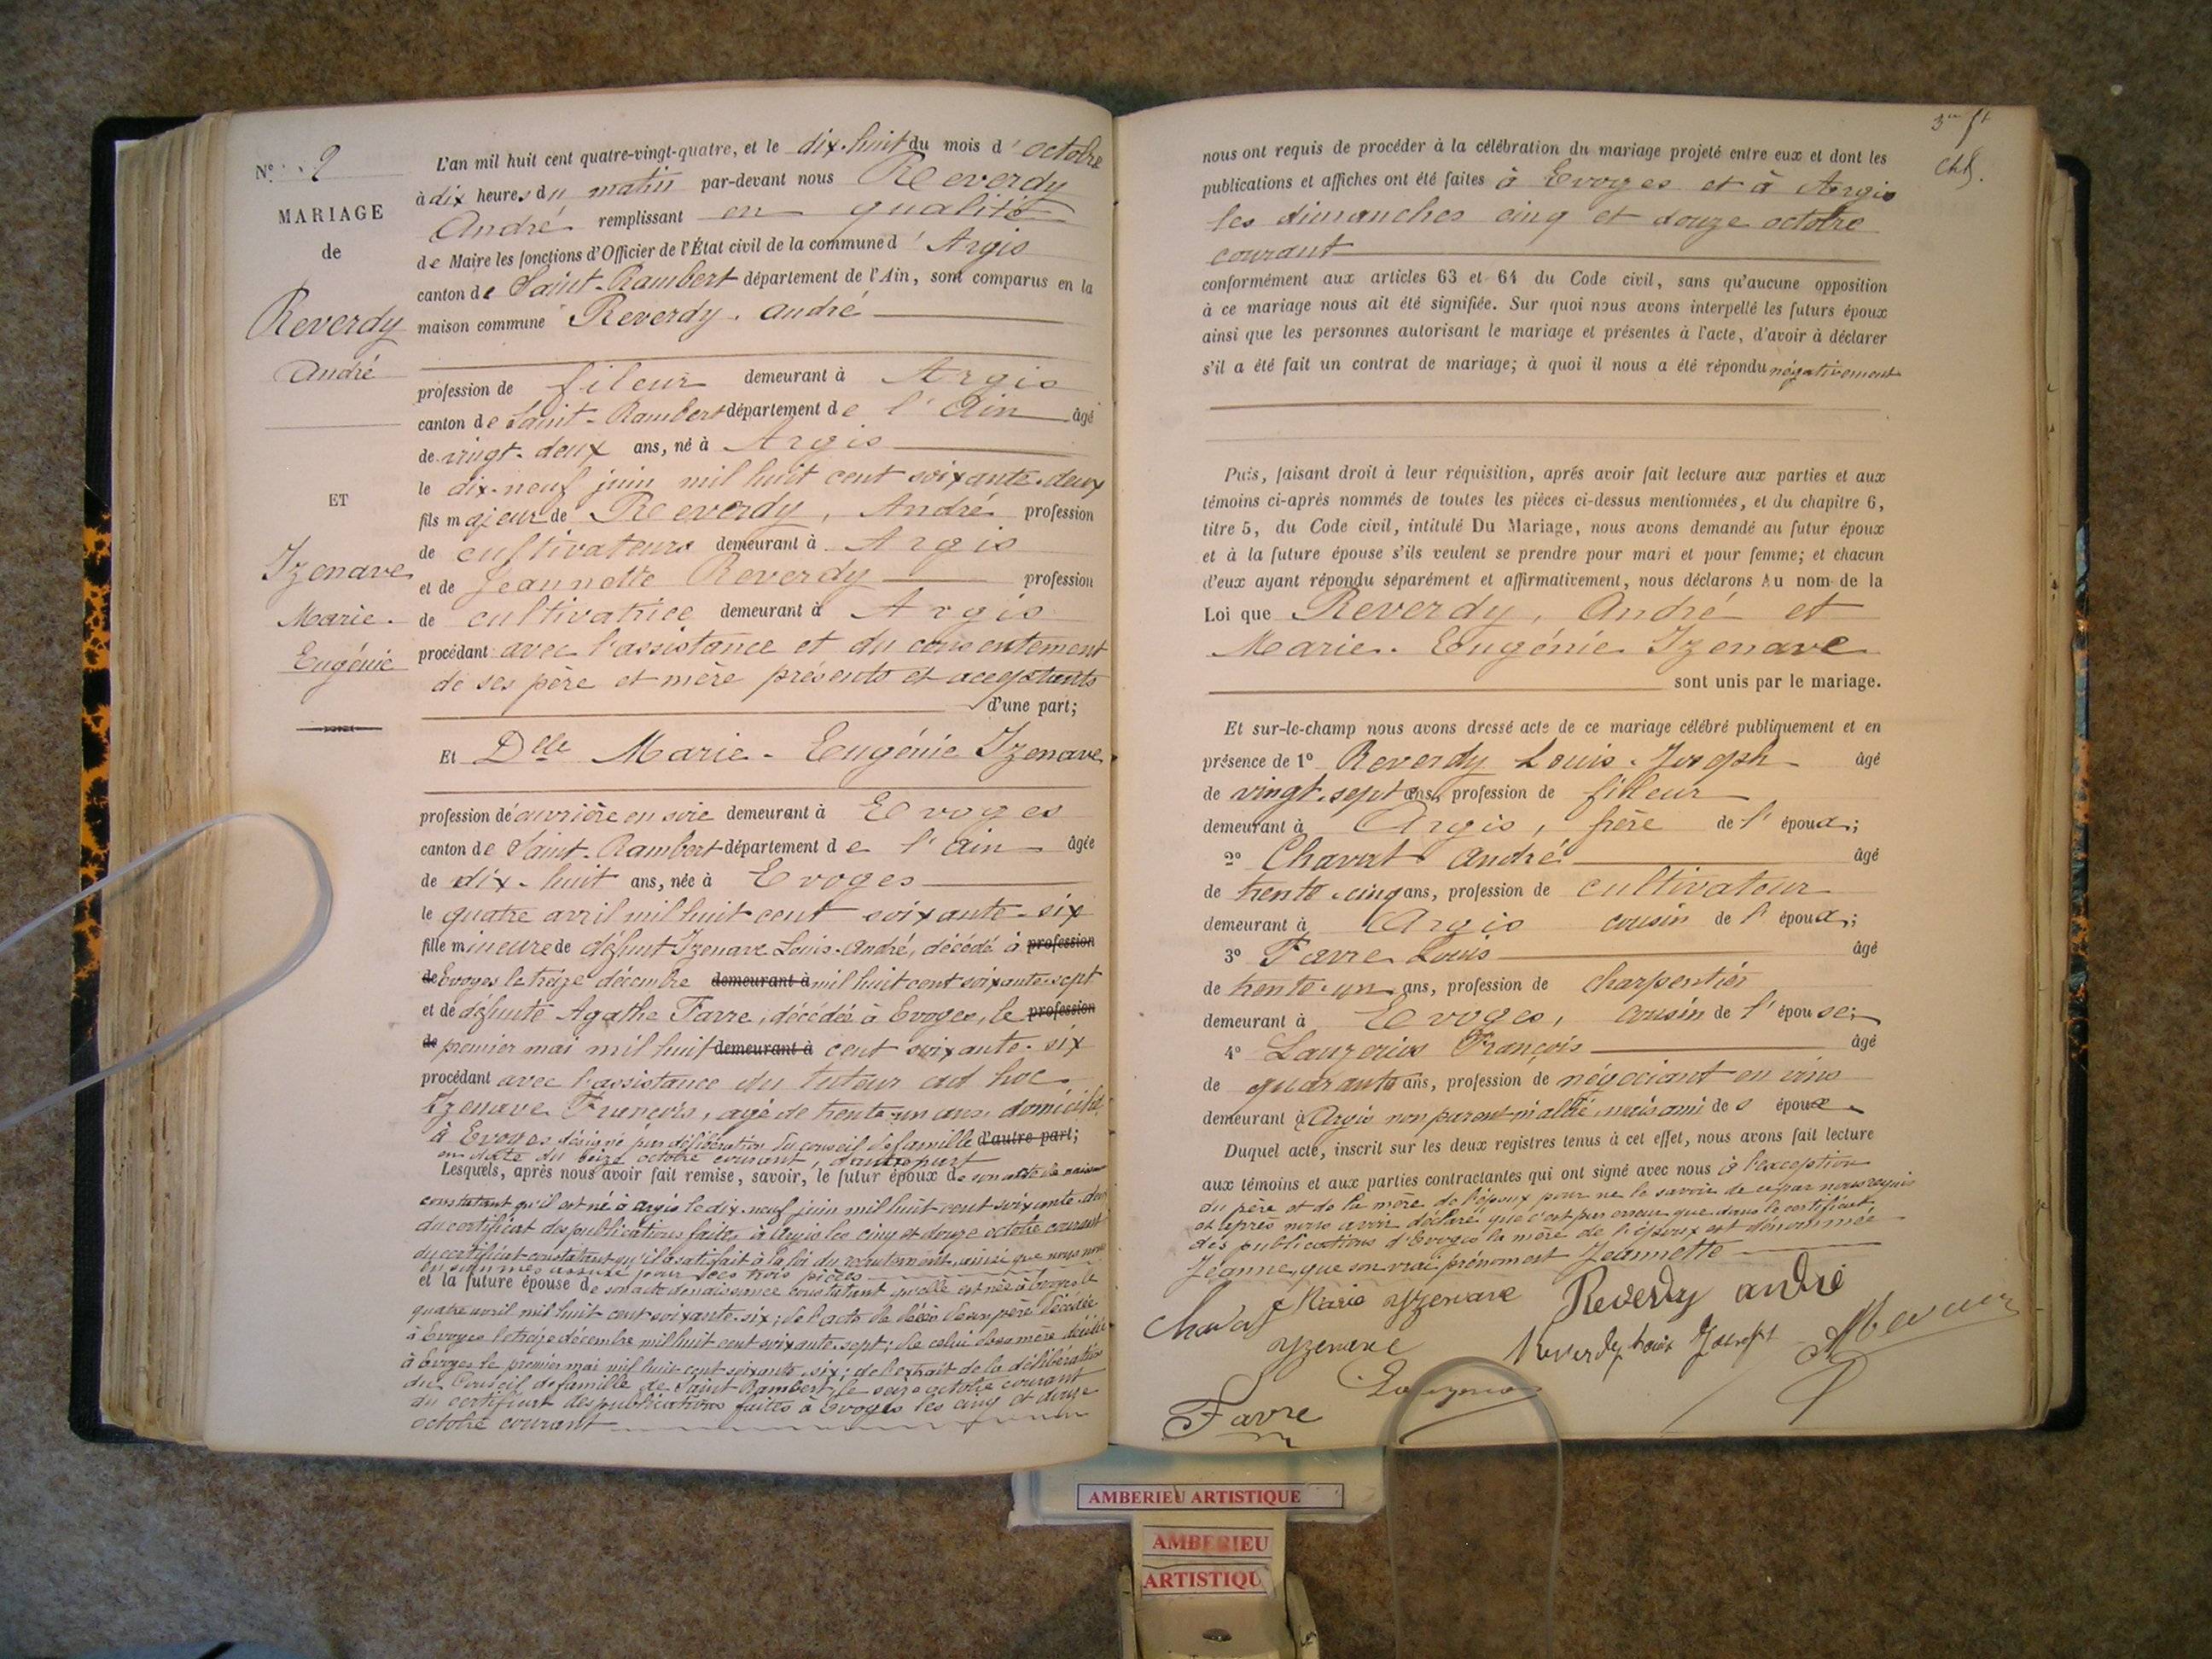 N° 2
MARIAGE
de
Reverdy
André
ET
Izenave
Marie-
Eugénie
L'an mil huit cent quatre-vingt-quatre, et le dix-huit du mois d'octobre
à dix heures du matin par-devant nous Reverdy
André remplissant en qualité
de Maire les fonctions d'Officier de l'État civil de la commune d'Argis
canton de Saint-Rambert département de l'Ain, sont comparus en la
maison commune Reverdy André
profession de fileur demeurant à Argis
canton de Saint-Rambert département de l'Ain âgé
de vingt-deux ans, né à Argis
le dix-neuf juin mil huit cent soixante-deux
fils majeur de Reverdy, André profession
de cultivateurs demeurant à Argis
et de Jeannette Reverdy profession
de cultivatrice demeurant à Argis
procédant avec l'assistance et du consentement
de ses père et mère présents et acceptants
d'une part;
Et Delle Marie-Eugénie Izenave
profession d'ouvrière en soie demeurant à Evoges
canton de Saint-Rambert département de l'Ain âgée
de dix-huit ans, née à Evoges
le quatre avril mil huit cent soixante-six
fille mineure de défunt Izenave Louis-André, décédé à profession
de Evoges le treize décembre demeurant à mil huit cent soixante-sept
et de défunte Agathe Favre, décédée à Evoges, le profession
de premier mai mil huit demeurant à cent soixante-six
procédant avec l'assistance du tuteur ad hoc
Izenave François, agé de trente-un ans, domicilié
à Evoges désigné par délibération du conseil de famille d'autre part;
en date du seize octobre courant, d'autre part
Lesquels, après nous avoir fait remise, savoir, le futur époux de son acte de naissance
constatant qu'il est né à Argis le dix-neuf juin mil huit cent soixante-deux
du certificat des publications faites à Argis les cinq et douze octobre courant
du certificat constatant qu'il a satisfait à la loi du recrutement, ainsi que nous nous
en sommes assuré pour ses trois pièces
et la future épouse de son acte de naissance constatant qu'elle est née à Evoges le
quatre avril mil huit cent soixante-six; de l'acte de décès de son père décédé
à Evoges le treize décembre mil huit cent soixante-sept; de celui de sa mère décédée
à Evoges le premier mai mil huit cent soixante-six; de l'extrait de la délibération
du Conseil de famille de Saint-Rambert le seize octobre courant
du certificat des publications faites à Evoges les cinq et douze
octobre courant
nous ont requis de procéder à la célébration du mariage projeté entre eux et dont les
publications et affiches ont été faites à Evoges et à Argis
les dimanches cinq et douze octobre
courant
conformément aux articles 63 et 64 du Code civil, sans qu'aucune opposition
à ce mariage nous ait été signifiée. Sur quoi nous avons interpellé les futurs époux
ainsi que les personnes autorisant le mariage et présentes à l'acte, d'avoir à déclarer
s'il a été fait un contrat de mariage; à quoi il nous a été répondu négativement
Puis, faisant droit à leur réquisition, après avoir fait lecture aux parties et aux
témoins ci-après nommés de toutes les pièces ci-dessus mentionnées, et du chapitre 6,
titre 5, du Code civil, intitulé Du Mariage, nous avons demandé au futur époux
et à la future épouse s'ils veulent se prendre pour mari et pour femme; et chacun
d'eux ayant répondu séparément et affirmativement, nous déclarons Au nom de la
Loi que Reverdy, André et
Marie-Eugénie Izenave
sont unis par le mariage.
Et sur-le-champ nous avons dressé acte de ce mariage célébré publiquement et en
présence de 1° Reverdy Louis-Joseph âgé
de vingt-sept ans, profession de fileur
demeurant à Argis, frère de l'époux;
2° Chavat André âgé
de trente-cinq ans, profession de cultivateur
demeurant à Argis cousin de l'époux;
3° Favre Louis âgé
de trente-un ans, profession de charpentier
demeurant à Evoges, cousin de l'épouse;
4° François âgé
de quarante ans, profession de négociant en vins
demeurant à Argis non parent ni allié, mais ami des époux.
Duquel acte, inscrit sur les deux registres tenus à cet effet, nous avons fait lecture
aux témoins et aux parties contractantes qui ont signé avec nous à l'exception
du père et de la mère de l'époux pour ne le savoir de ce par nous requis
et après nous avoir déclaré que c'est par erreur que dans le certificat
des publications d'Evoges la mère de l'époux est dénommée
Jeanne, que son vrai prénom est Jeannette
Chavat Marie Yzenave Reverdy andré
Yzenave Reverdy Louis Joseph
Favre
AMBERIEU ARTISTIQUE
AMBERIEU
ARTISTIQU